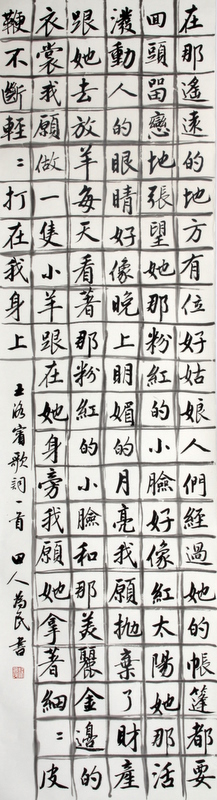 在那遙遠的地方有位好姑娘人們經過她的帳篷都要
回頭留戀地張望她那粉紅的小臉好像紅太陽她那活
潑動人的眼睛好像晚上明媚的月亮我願拋棄了財產
跟她去放羊每天看著那粉紅的小臉和那美麗金邊的
衣裳我願做一隻小羊跟在她身旁我願她拿著細〻皮
鞭不斷輕〻打在我身上
王洛賓歌詞一首 田人為民書